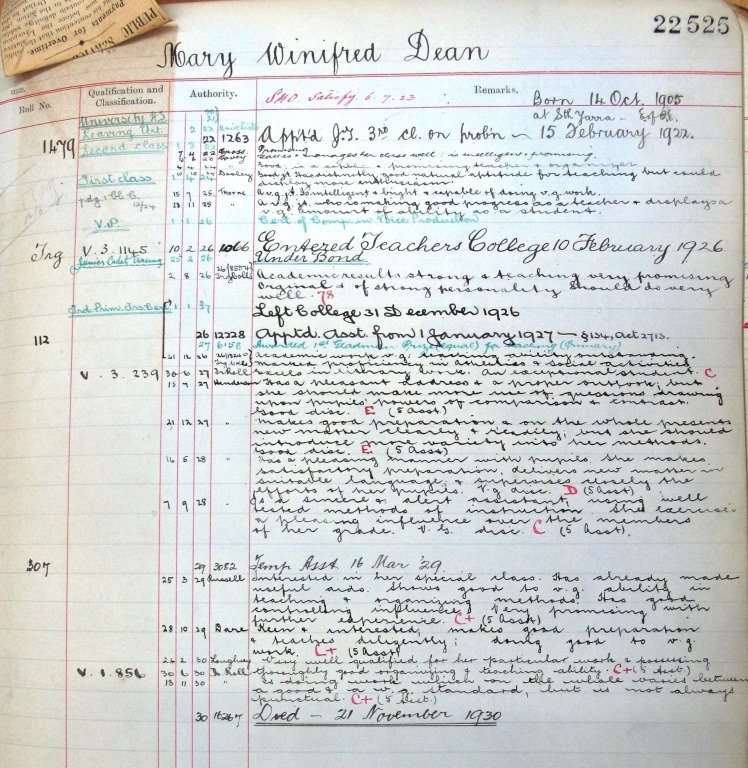 PUBLIC
Payments for Overtime.
22525
Mary Winifred Dean
Roll No.
Qualification and Classification.
Authority.
Remarks.
S.M.O. Satisfy. 6. 7. 23
Born 14 Oct. 1905
at Sth Yarra
University
Leaving
1479
22 1263 Apptd J.T. 3rd cl. on probn — 15 February 1922.
Second class
teaches & manages her class well: is intelligent & promising.
First class
good natural aptitude for teaching but could
display more enthusiasm.
15 7 25 Thorne A v.g. jt. Is intelligent & bright & capable of doing v.g. work.
23 11 25 " A v.g. jt. who is making good progress as a teacher & displays a
v.g. amount of ability as a student.
V.P. 1 1 26 Cert of Comp. in Voice Production
Trg V. 3. 1145 10 2 26 1066 Entered Teachers College 10 February 1926
Junior Cadet Traing 25 2 26 Under Bond
2 8 26 Academic results strong & teaching very promising
Original & of strong personality Should do very
well. 78
Trd. Prim. Trs Cert 1 1 27
Left College 31 December 1926
112 26 12228 Apptd. Asst. from 1 January 1927 — § 134, Act 2713.
27 6158 Awarded 1st Gladman Prize (equal) for Teaching (Primary)
21 12 26 Academic work v.g.; teaching ability outstanding.
V. 3. 239 30 6 27 McRoll excels in literary work. An exceptional student. C
15 7 27 Henderson Has a pleasant address & a proper outlook, but
she should make more use of questions drawing
upon pupils' powers of comparison & contrast.
Good disc. E (5 Asst)
21 12 27 " Makes good preparation & on the whole presents
new matter clearly & readily, but she should
introduce more variety into her methods.
Good disc. E. (5 Asst)
16 5 28 " Has a pleasing manner with pupils. She makes
satisfactory preparation, delivers new matter in
suitable language, & supervises closely the
efforts of her pupils. V.g. disc. D (5 Asst)
7 9 28 " Is a sincere & alert assistant, using well
tested methods of instruction. She exercises
a pleasing influence over the members
of her grade. V. G. disc. C (5 Asst).
307 29 3082 Temp Asst 16 Mar '29.
25 3 29 Russell Interested in her special class. Has already made
useful aids. Shows good to v.g. ability in
teaching & organizing methods. Has good
controlling influence. Very promising with
further experience. C+ (5 Asst)
28 10 29 Dare Keen & interested; makes good preparation
& teaches diligently; doing good to v.g.
work. C+ (5 Asst)
26 2 30 Loughrey Very well qualified for her particular work & possessing
V. 1. 856 30 6 30 McRoll thoroughly good organising & teaching ability. C+ (5 Asst.)
13 11 30 " Is doing work which on the whole varies between
a good & a v.g. standard, but is not always
punctual. C+ (5 Dist.)
30 16267 Died — 21 November 1930